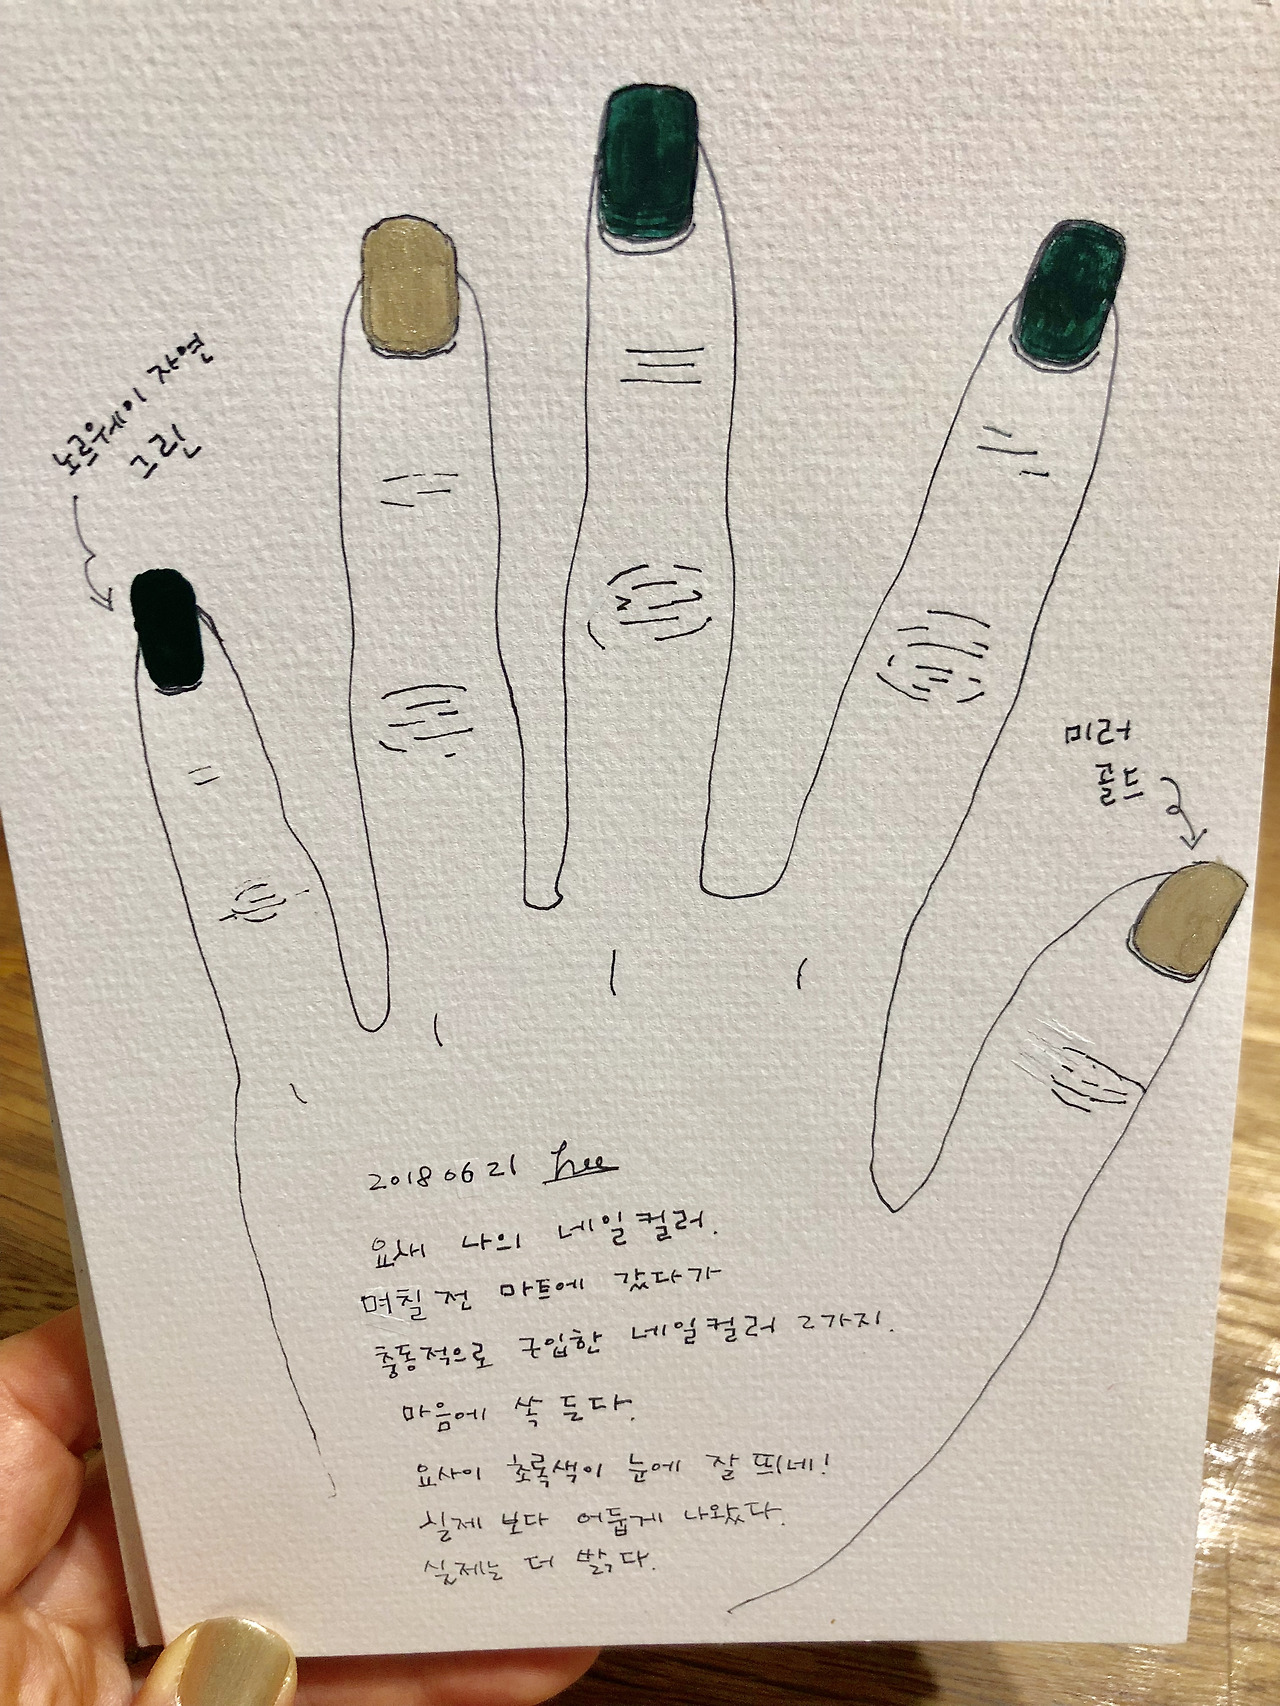 노르웨이 자연
그린
미러
골드
2018 06 21 hee
요새 나의 네일컬러.
며칠 전 마트에 갔다가
충동적으로 구입한 네일컬러 2가지.
마음에 쏙 든다.
요사이 초록색이 눈에 잘 띄네!
실제 보다 어둡게 나왔다.
실제는 더 밝다.